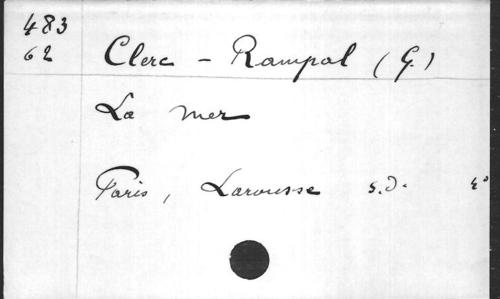 483
62
Clerc - Rampal (G.)
La mer
Paris, Larousse s.d. 4°